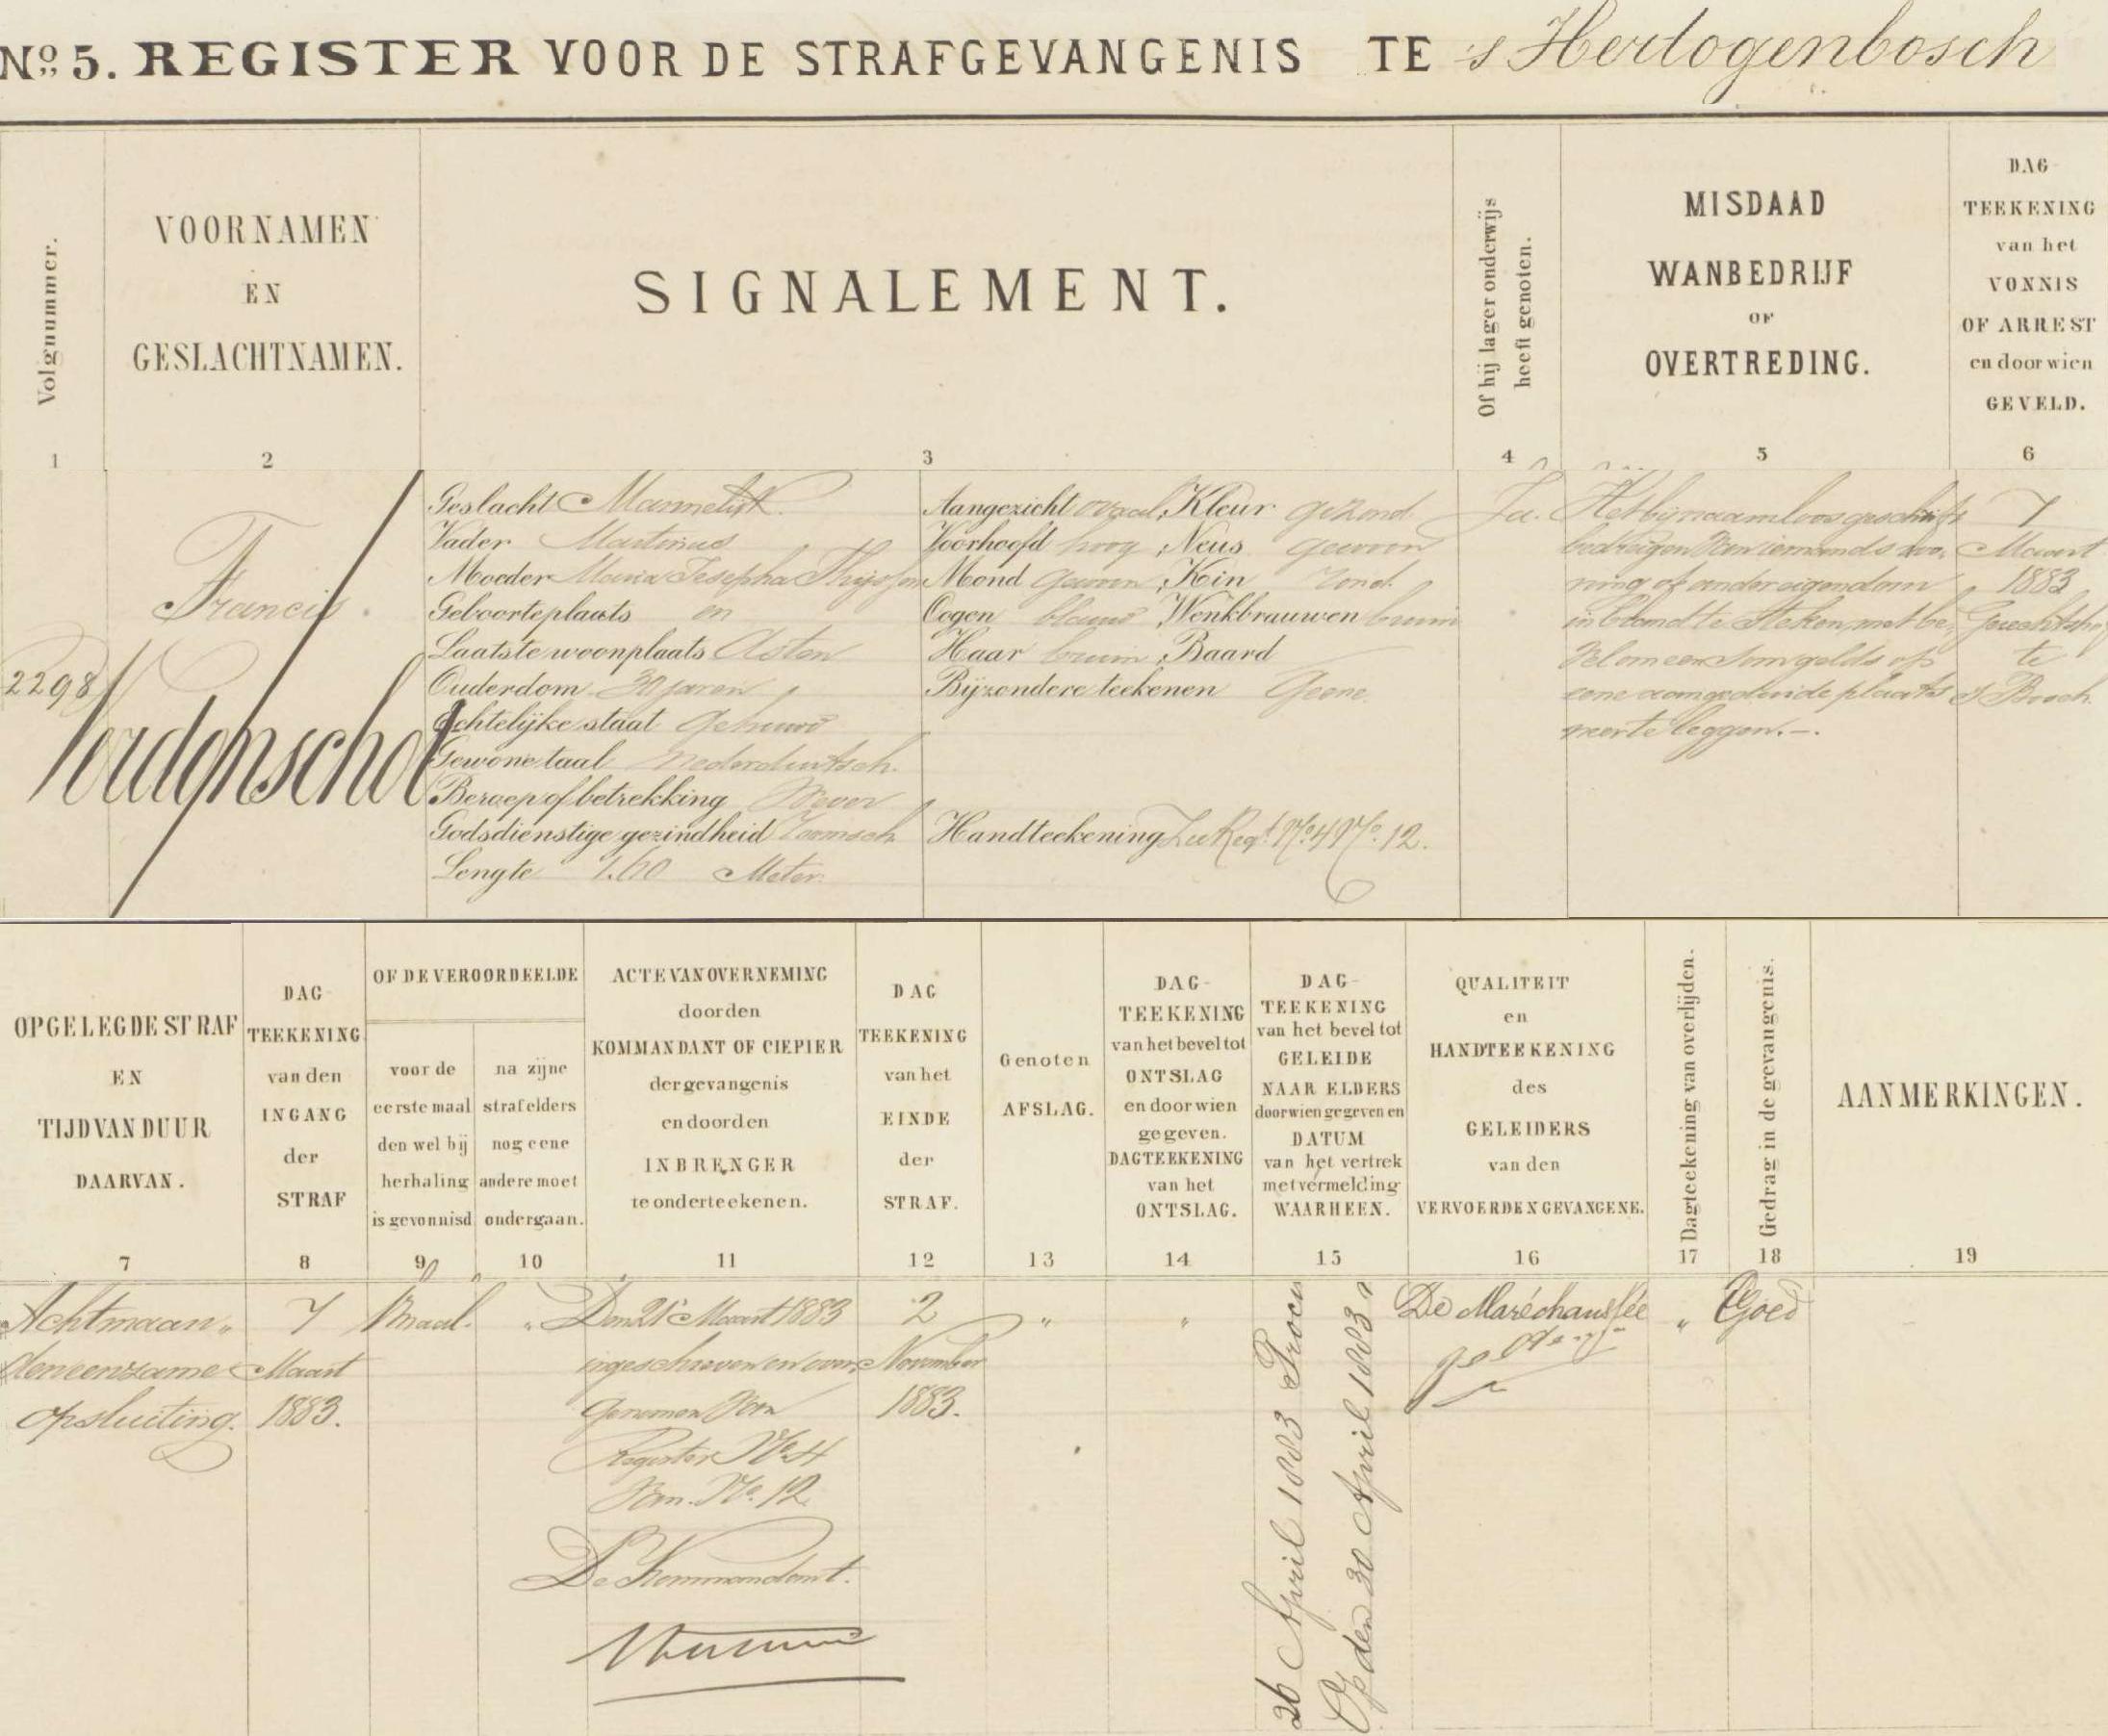 Nº 5. REGISTER VOOR DE STRAFGEVANGENIS TE 's Hertogenbosch
Volgnummer.
1
VOORNAMEN
EN
GESLACHTNAMEN.
2
SIGNALEMENT.
3
Of hij lager onderwijs
heeft genoten.
4
MISDAAD
WANBEDRIJF
OF
OVERTREDING.
5
DAG-
TEEKENING
van het
VONNIS
OF ARREST
en door wien
GEVELD.
6
2298
Francis
Verdonschot
Geslacht Mannelijk.
Vader Martinus
Moeder Maria Josepha Thijssen
Geboorteplaats en
Laatste woonplaats Asten
Ouderdom 30 jaren
Echtelijke staat Gehuwd
Gewone taal Nederduitsch.
Beroep of betrekking Wever
Godsdienstige gezindheid Roomsch
Lengte 1.60 Meter.
Aangezicht ovaal, Kleur gezond
Voorhoofd hoog, Neus gewoon
Mond Gewoon, Kin rond.
Oogen blauw, Wenkbrauwen bruin
Haar bruin, Baard
Bijzondere teekenen Geene
Handteekening Zie Regt. Nº 4 Nº. 12.
Ja.
Het bij naamloos geschrift
bedreigen van iemands wo-
ning of ander eigendom
in brand te steken, met be-
vel om een som gelds op
eene aangeduide plaats
neer te leggen.-.
7
Maart
1883
Gerechtshof
te
s Bosch.
OPGELEGDE STRAF
EN
TIJD VAN DUUR
DAARVAN.
7
DAG-
TEEKENING
van den
INGANG
der
STRAF
8
OF DE VEROORDEELDE
voor de
eerste maal
den wel bij
herhaling
is gevonnisd
9
na zijne
straf elders
nog eene
andere moet
ondergaan.
10
ACTE VAN OVERNEMING
door den
KOMMANDANT OF CIEPIER
der gevangenis
en door den
INBRENGER
te onderteekenen.
11
DAG
TEEKENING
van het
EINDE
der
STRAF.
12
Genoten
AFSLAG.
13
DAG-
TEEKENING
van het bevel tot
ONTSLAG
en door wien
gegeven.
DAGTEEKENING
van het
ONTSLAG.
14
DAG-
TEEKENING
van het bevel tot
GELEIDE
NAAR ELDERS
door wien gegeven en
DATUM
van het vertrek
met vermelding
WAARHEEN.
15
QUALITEIT
en
HANDTEEKENING
des
GELEIDERS
van den
VERVOERDEN GEVANGENE.
16
Dagteekening van overlijden.
17
Gedrag in de gevangenis.
18
AANMERKINGEN.
19
Acht maan-
den eenzame
opsluiting.
7
Maart
1883.
1 maal.
"
Den 21e Maart 1883
ingeschreven en over-
genomen van
Register Nº 4
Van. Nº. 12.
De Kommandant.
2
November
1883.
"
"
26 April 1883 Procu
Op den 30 April 1883 n
De Maréchaussée
"
Goed